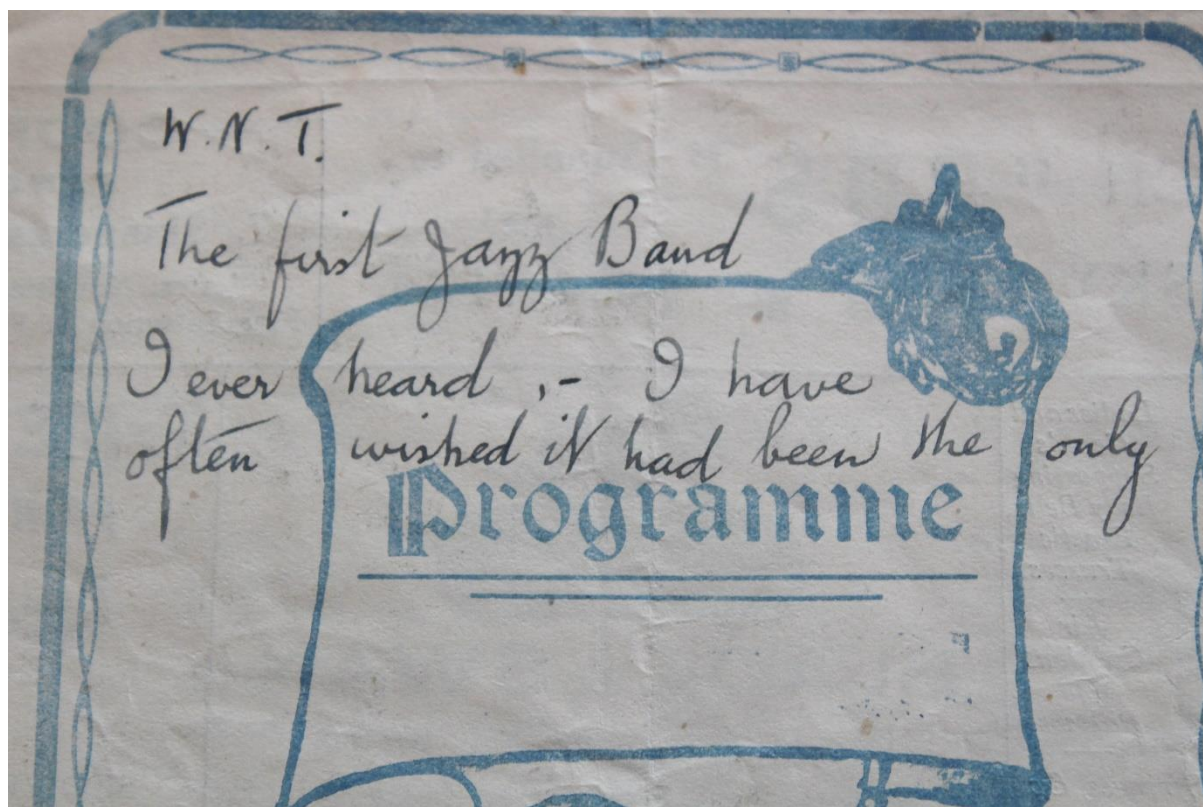 W.N.T.
The first Jazz Band
I ever heard ,- I have
often wished it had been the only
Programme